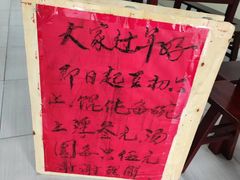 大家过年好
即日起至初六
止,馄饨每碗
上浮叁元,汤
圆每只伍元
谢谢理解